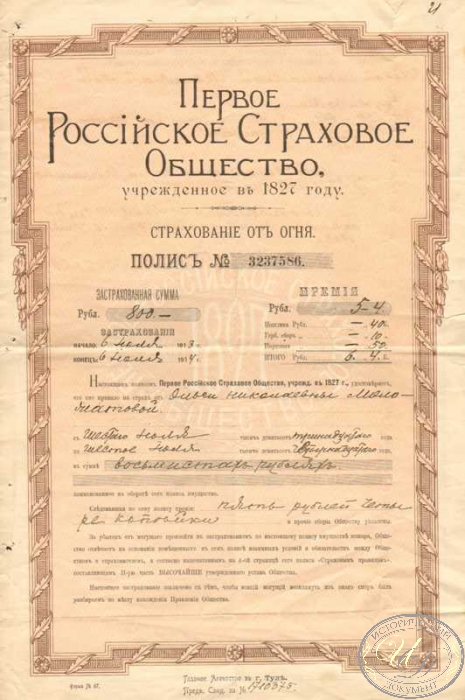 21
Первое
Россійское Страховое
Общество,
учрежденное въ 1827 году.
СТРАХОВАНІЕ ОТЪ ОГНЯ.
ПОЛИСЪ № 3237586.
ЗАСТРАХОВАННАЯ СУММА
Рубл. 800.—
ЗАСТРАХОВАНІЯ
начало 6 июля 1913 г.
конецъ 6 июля 1914 г.
ПРЕМІЯ
Рубл. 5-4
Пошлина Рубл. — 40
Герб. сборъ — 10
Рубл. — 50
ИТОГО Рубл. 6. 4 к.
Настоящимъ полисомъ Первое Россійское Страховое Общество, учрежд. въ 1827 г., удостовѣряетъ,
что оно приняло на страхъ отъ Николаевны
съ Шестого июля тысяча девятьсотъ тринадцатого года
по Шестое июля тысяча девятьсотъ четырнадцатого года
въ суммѣ восьмистахъ рубляхъ
поименованное на оборотѣ сего полиса имущество.
Слѣдованная по сему полису премія пять рублей четы
ре копѣйки и прочіе сборы Обществу уплачены.
За убытки отъ могущаго произойти въ застрахованномъ по настоящему полису имуществѣ пожара, Общество
отвѣчаетъ на основаніи помѣщенныхъ въ семъ полисѣ взаимныхъ условій и обязательствъ между Обществомъ
и страхователемъ, и согласно напечатаннымъ на 4-ой страницѣ сего полиса «Страховымъ правиламъ»,
составляющимъ II-ую часть ВЫСОЧАЙШЕ утвержденнаго устава Общества.
Настоящее застрахованіе заключено съ тѣмъ, чтобы всякій могущій возникнуть изъ онаго споръ былъ
разбираемъ по мѣсту нахожденія Правленія Общества.
Форма № 67.
Главное Агентство въ г. Тулѣ.
Предв. Свид. за № 1710375
ИСТОРИЧЕСКИЙ
ДОКУМЕНТ